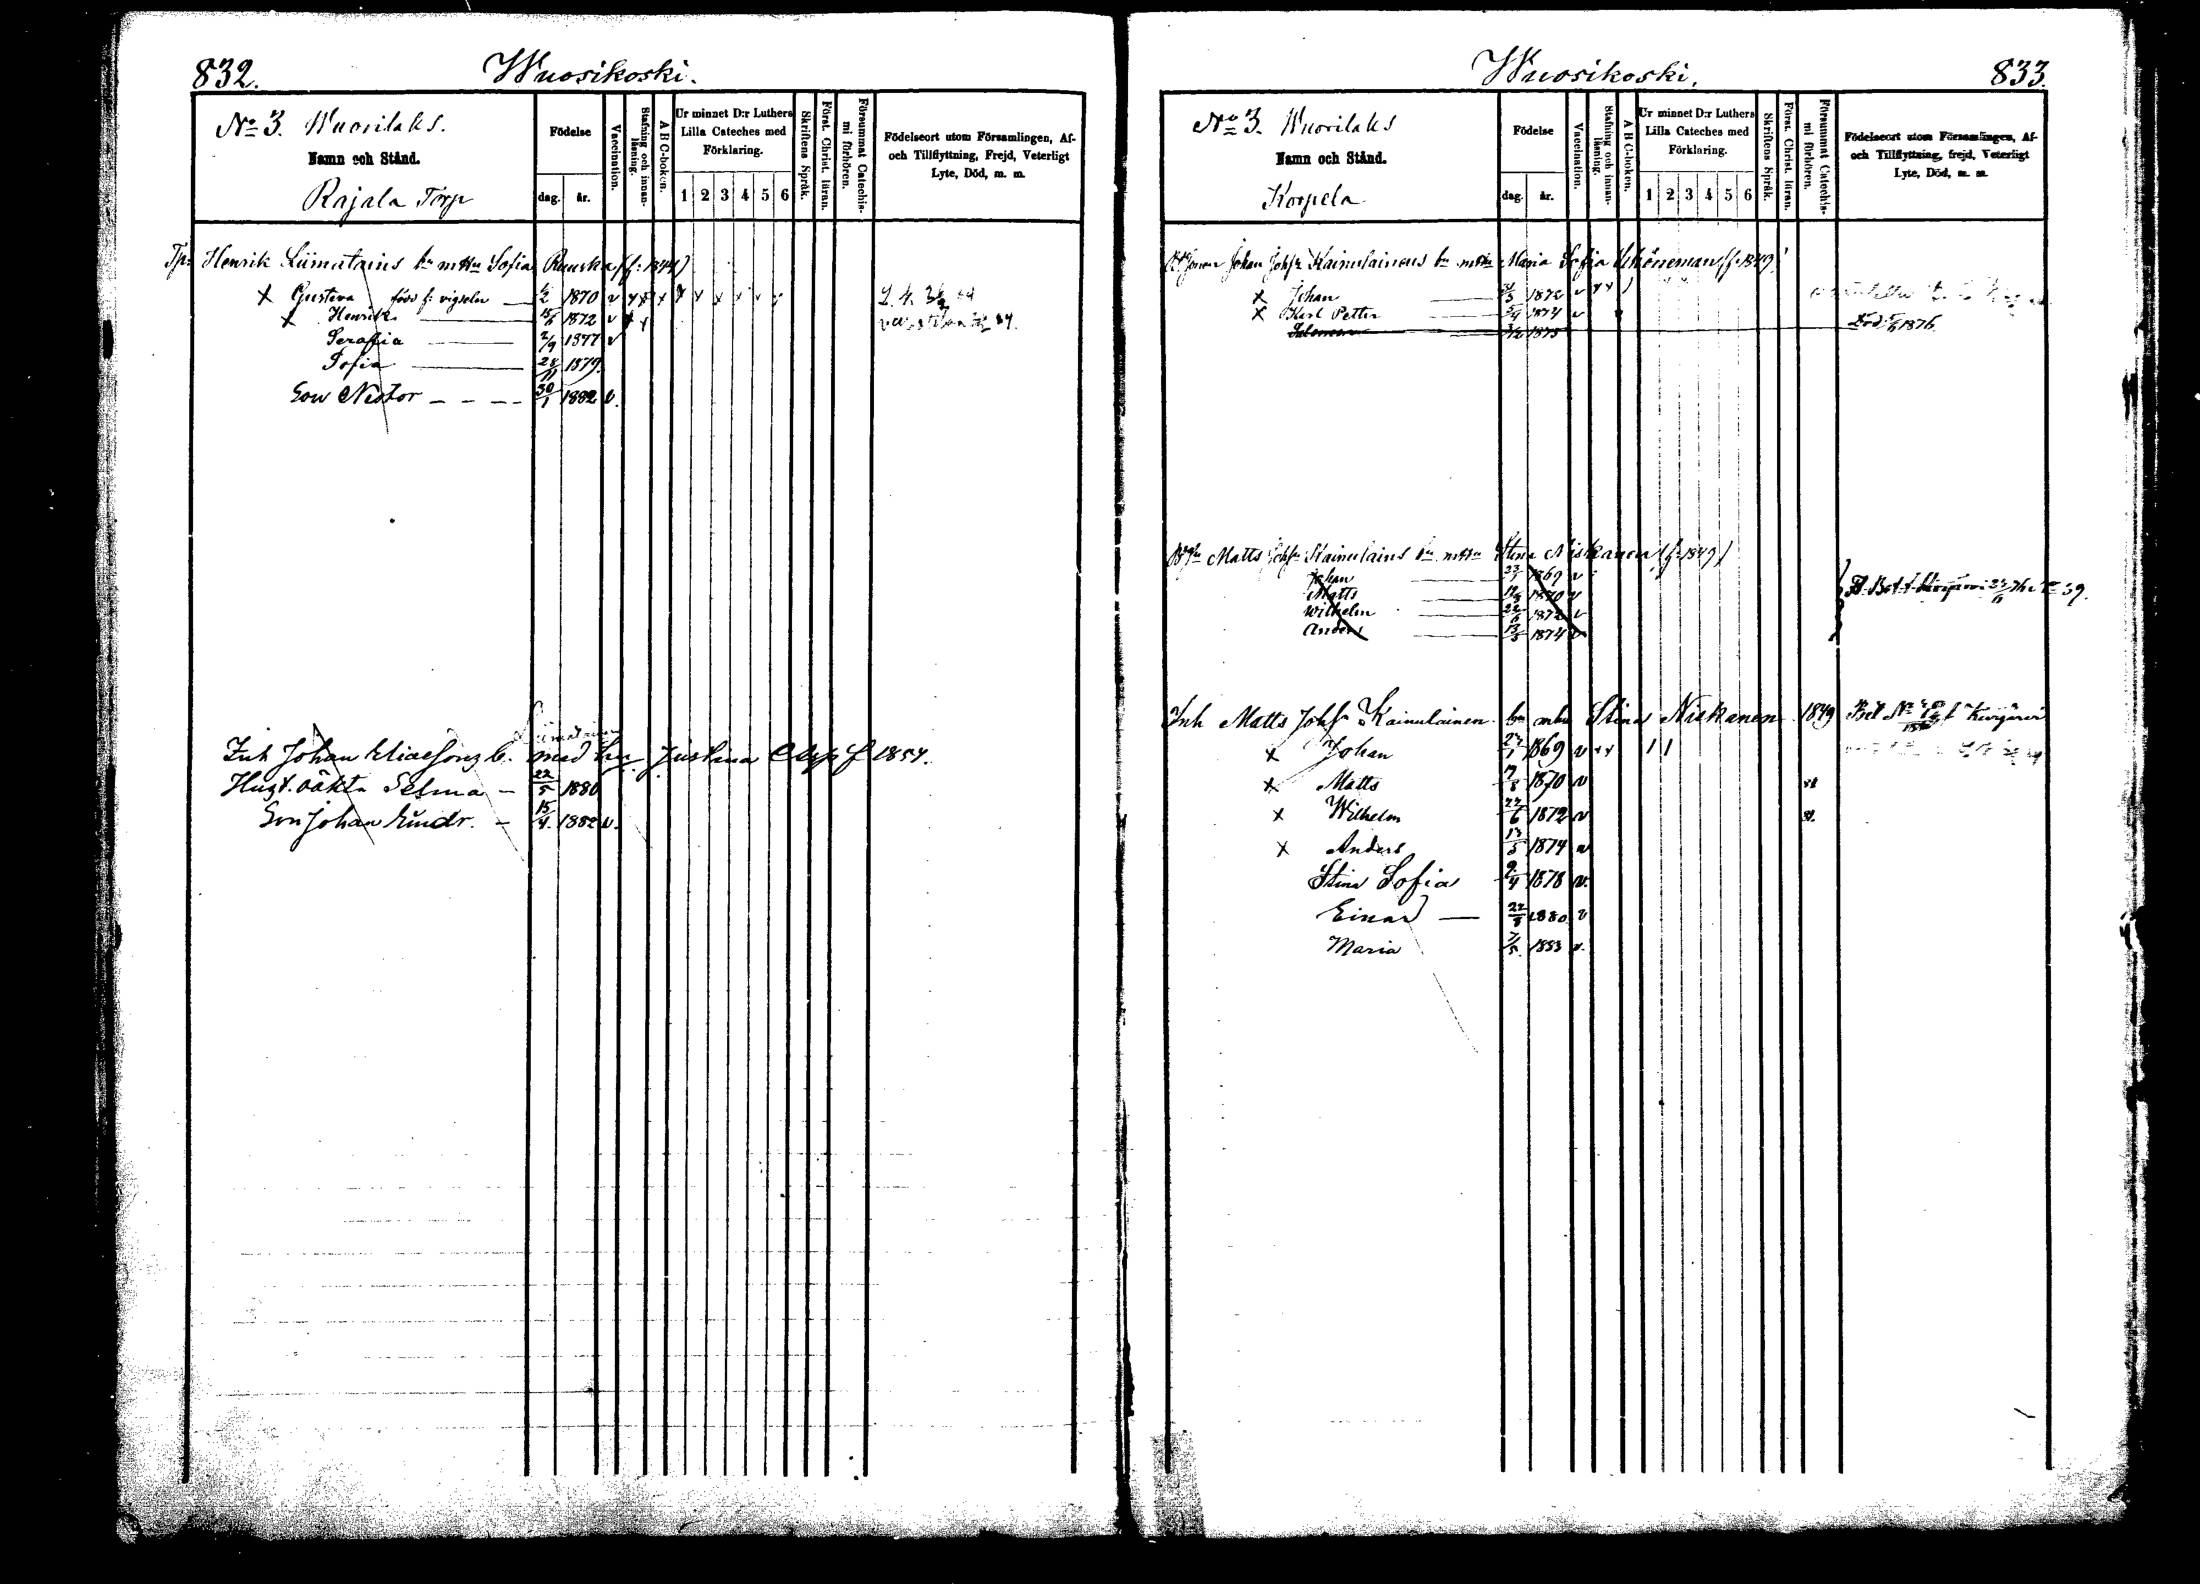 832.
Wuosikoski.
No 3. Wuorilaks.
Namn och Stånd.
Rajala Torp
Födelse
dag. år.
Vaccination.
Stafning och innan-läsning.
A B C-boken.
Ur minnet D:r Luthers Lilla Cateches med Förklaring.
1 2 3 4 5 6
Skriftens Språk.
Först. Christ. läran.
Försummat Catechis-mi förhören.
Födelseort utom Församlingen, Af- och Tillflyttning, Frejd, Veterligt Lyte, Död, m. m.
Tp: Henrik Liimatains bn m Hu Sofia Ruuska (f: 1844)
x Gustava född f: vigseln 1/2 1870 v x x x x x x x v v
x Henrik 1872 v x x
Serafia 2/9 1877 v
Sofia 28/11 1879.
Son Nestor 30/1 1882 v.
Liimatainen
Inh Johan b. med hu Justina f 1854.
Hust. oäkta Selma 22/5 1880
Son Johan 15/4 1882 v.
Wuosikoski.
833.
No 3. Wuorilaks
Namn och Stånd.
Korpela
Födelse
dag. år.
Vaccination.
Stafning och innan-läsning.
A B C-boken.
Ur minnet D:r Luthers Lilla Cateches med Förklaring.
1 2 3 4 5 6
Skriftens Språk.
Först. Christ. läran.
Försummat Catechis-mi förhören.
Födelseort utom Församlingen, Af- och Tillflyttning, frejd, Veterligt Lyte, Död, m. m.
Johan Johsn Kainulainens bn m Hu Maria Sofia (f: 1849)
x Johan 1872 v x x
x Karl Petter 1874 v
Salomon 1875 Död 1876
Matts Johsn Kainulains bn m Hu Stina Niskanen (f: 1849)
Johan 23/1 1869 v
Matts 1870 v
Wilhelm 22/6 1872 v
Anders 13/5 1874 v
Inh Matts Johsn Kainulainen bn m hu Stina Niskanen 1849
x Johan 23/1 1869 v x x 1 1
x Matts 1870 v
x Wilhelm 22/6 1872 v
x Anders 13/5 1874 v
Stina Sofia 9/4 1878 v.
Einar 22/8 1880 v
Maria 7/5 1883 v.